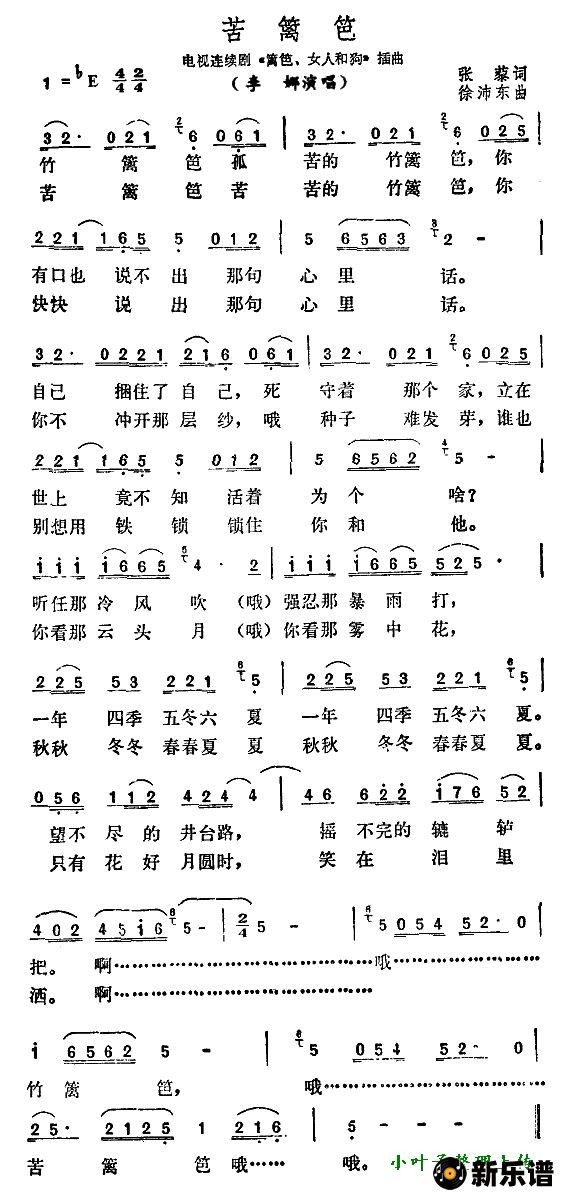 苦篱笆
电视连续剧《篱笆、女人和狗》插曲
1=bE 4/4 2/4
(李娜演唱)
张藜词
徐沛东曲
32· 021 6 061 | 32· 021 6 025 |
竹 篱 笆 孤 苦的 竹篱 笆,你
苦 篱 笆 苦 苦的 竹篱 笆,你
221 165 5 012 | 5 6563 2 - |
有口也 说不 出 那句 心 里 话。
快快 说 出 那句 心 里 话。
32· 0221 216 061 | 32· 021 6 025 |
自己 捆住了 自 己,死 守着 那个 家,立在
你不 冲开那 层 纱,哦 种子 难发 芽,谁也
221 165 5 012 | 5 6562 5 - |
世上 竟不 知 活着 为 个 啥?
别想用 铁 锁 锁住 你 和 他。
iii i665 4· 2 | iii i665 525· |
听任那 冷 风 吹 (哦) 强忍那 暴 雨 打,
你看那 云 头 月 (哦) 你看那 雾 中 花,
225 53 221 5 | 225 53 221 5 |
一年 四季 五冬六 夏 一年 四季 五冬六 夏。
秋秋 冬冬 春春夏 夏 秋秋 冬冬 春春夏 夏。
056 112 424 4 | 46 622 i76 52 |
望不 尽的 井台路, 摇 不完的 辘 轳
只有 花好 月圆时, 笑 在 泪 里
402 45i6 5- | 2/4 5 - | 5 054 52· 0 |
把。 啊………………………哦…………
洒。 啊………………………
i 6562 5 - | 5 054 52· 0 |
竹 篱 笆, 哦…………
25· 2125 221 616 | 5 - - - |
苦 篱 笆 哦…… 哦。
小叶子整理上传
新乐谱